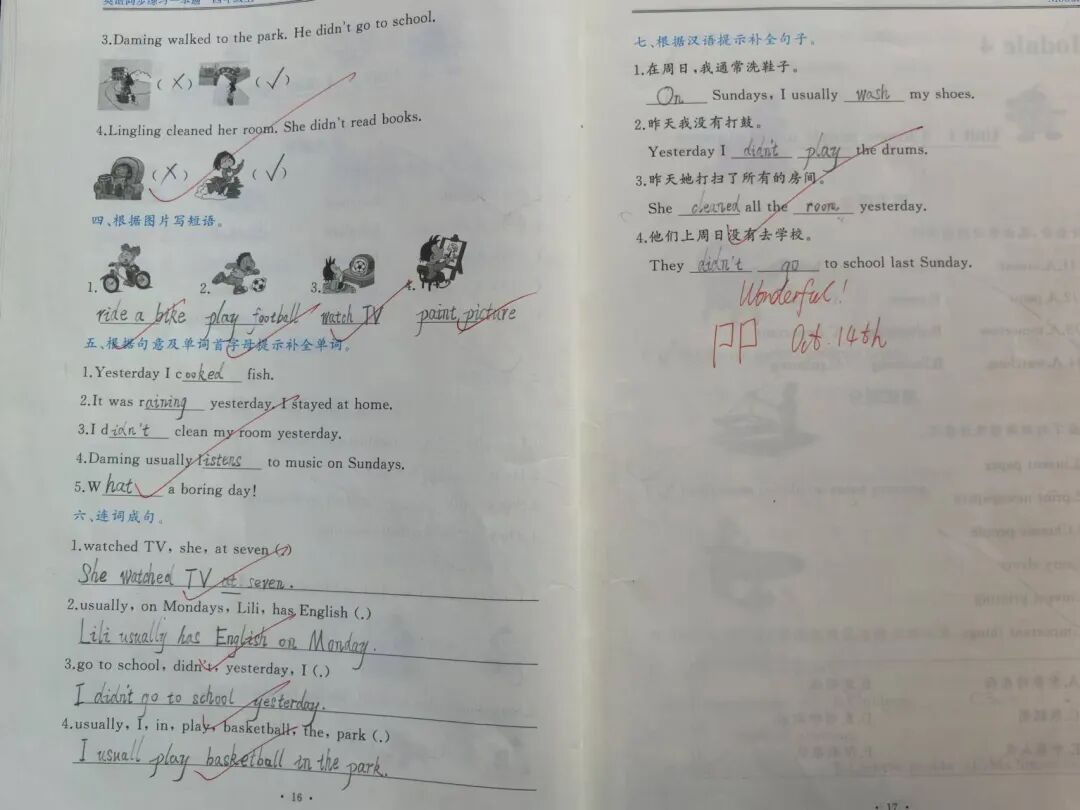 英语同步练习一本通 四年级上
3.Daming walked to the park. He didn't go to school.
(×) (√)
4.Lingling cleaned her room. She didn't read books.
(×) (√)
四、根据图片写短语。
1. 2. 3. 4.
ride a bike play football watch TV paint picture
五、根据句意及单词首字母提示补全单词。
1.Yesterday I cooked fish.
2.It was raining yesterday. I stayed at home.
3.I didn't clean my room yesterday.
4.Daming usually listens to music on Sundays.
5.What a boring day!
六、连词成句。
1.watched TV, she, at seven (.)
She watched TV at seven.
2.usually, on Mondays, Lili, has English (.)
Lili usually has English on Monday.
3.go to school, didn't, yesterday, I (.)
I didn't go to school yesterday.
4.usually, I, in, play, basketball, the, park (.)
I usuall play basketball in the park.
· 16 ·
七、根据汉语提示补全句子。
1.在周日,我通常洗鞋子。
On Sundays, I usually wash my shoes.
2.昨天我没有打鼓。
Yesterday I didn't play the drums.
3.昨天她打扫了所有的房间。
She cleaned all the room yesterday.
4.他们上周日没有去学校。
They didn't go to school last Sunday.
Wonderful!
Oct. 14th
· 17 ·